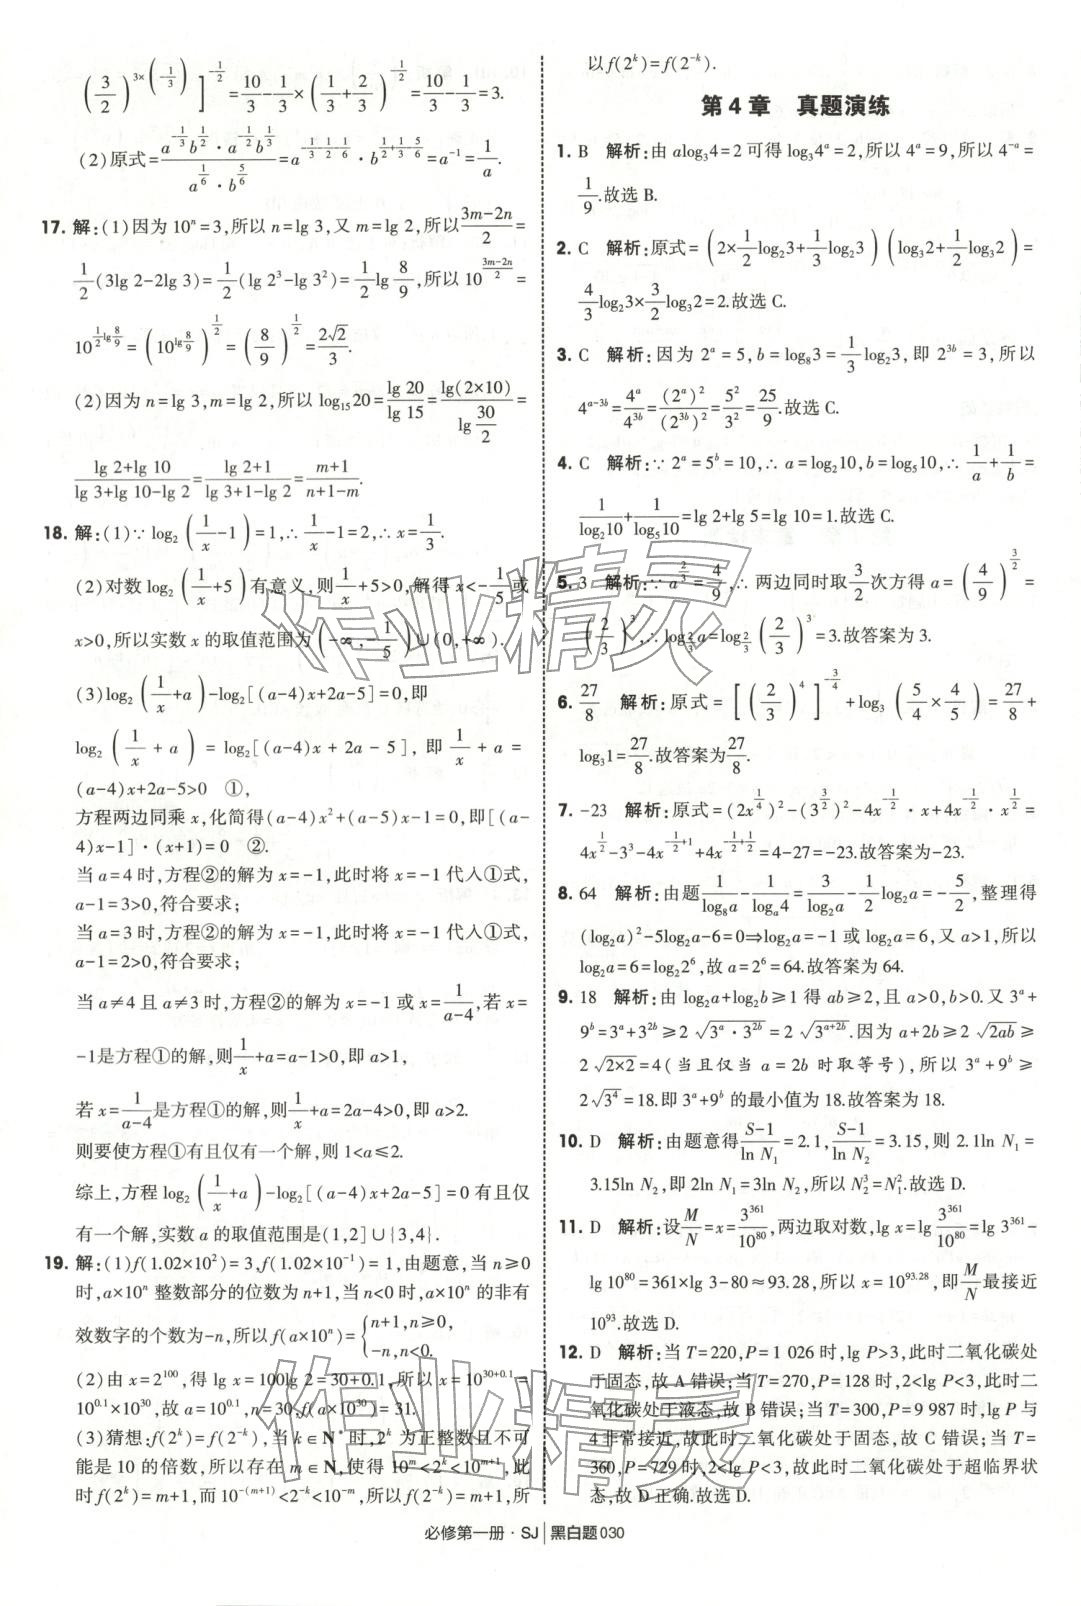 (3/2)^{3×(-1/3)}]^{-1/2}=10/3-1/3×(1/3+2/3)^{1/2}=10/3-1/3=3.
(2)原式=a^{-1/3}b^{1/2}·a^{-1/2}b^{1/3}/(a^{1/6}·b^{5/6})=a^{-1/3-1/2-1/6}·b^{1/2+1/3-5/6}=a^{-1}=1/a.
17. 解:(1)因为10^n=3,所以n=lg 3,又m=lg 2,所以(3m-2n)/2=
1/2(3lg 2-2lg 3)=1/2(lg 2^3-lg 3^2)=1/2 lg 8/9,所以10^{(3m-2n)/2}=
10^{1/2 lg 8/9}=(10^{lg 8/9})^{1/2}=(8/9)^{1/2}=2√2/3.
(2)因为n=lg 3,m=lg 2,所以log_{15}20=lg 20/lg 15=lg(2×10)/lg(30/2)=
(lg 2+lg 10)/(lg 3+lg 10-lg 2)=(lg 2+1)/(lg 3+1-lg 2)=(m+1)/(n+1-m).
18. 解:(1)∵log_2(1/x-1)=1,∴1/x-1=2,∴x=1/3.
(2)对数log_2(1/x+5)有意义,则1/x+5>0,解得x<-1/5或
x>0,所以实数x的取值范围为(-∞,-1/5)∪(0,+∞).
(3)log_2(1/x+a)-log_2[(a-4)x+2a-5]=0,即
log_2(1/x+a)=log_2[(a-4)x+2a-5],即1/x+a=
(a-4)x+2a-5>0 ①,
方程两边同乘x,化简得(a-4)x^2+(a-5)x-1=0,即[(a-
4)x-1]·(x+1)=0 ②.
当a=4时,方程②的解为x=-1,此时将x=-1代入①式,
a-1=3>0,符合要求;
当a=3时,方程②的解为x=-1,此时将x=-1代入①式,
a-1=2>0,符合要求;
当a≠4且a≠3时,方程②的解为x=-1或x=1/(a-4),若x=
-1是方程①的解,则1/x+a=a-1>0,即a>1,
若x=1/(a-4)是方程①的解,则1/x+a=2a-4>0,即a>2.
则要使方程①有且仅有一个解,则1<a≤2.
综上,方程log_2(1/x+a)-log_2[(a-4)x+2a-5]=0有且仅
有一个解,实数a的取值范围是(1,2]∪{3,4}.
19. 解:(1)f(1.02×10^2)=3,f(1.02×10^{-1})=1,由题意,当n≥0
时,a×10^n整数部分的位数为n+1,当n<0时,a×10^n的非有
效数字的个数为-n,所以f(a×10^n)={n+1,n≥0,
-n,n<0.
(2)由x=2^{100},得lg x=100lg 2=30+0.1,所以x=10^{30+0.1}=
10^{0.1}×10^{30},故a=10^{0.1},n=30,f(a×10^{30})=31.
(3)猜想:f(2^k)=f(2^{-k}),当k∈N*时,2^k为正整数且不可
能是10的倍数,所以存在m∈N,使得10^m<2^k<10^{m+1},此
时f(2^k)=m+1,而10^{-(m+1)}<2^{-k}<10^{-m},所以f(2^{-k})=m+1,所
以f(2^k)=f(2^{-k}).
第4章 真题演练
1. B 解析:由alog_3 4=2可得log_3 4^a=2,所以4^a=9,所以4^{-a}=
1/9.故选B.
2. C 解析:原式=(2×1/2log_2 3+1/3log_2 3)(log_3 2+1/2log_3 2)=
4/3log_2 3×3/2log_3 2=2.故选C.
3. C 解析:因为2^a=5,b=log_8 3=1/3log_2 3,即2^{3b}=3,所以
4^{a-3b}=4^a/4^{3b}=(2^a)^2/(2^{3b})^2=5^2/3^2=25/9.故选C.
4. C 解析:∵2^a=5^b=10,∴a=log_2 10,b=log_5 10,∴1/a+1/b=
1/log_2 10+1/log_5 10=lg 2+lg 5=lg 10=1.故选C.
5. 3 解析:∵a^{2/3}=4/9,∴两边同时取3/2次方得a=(4/9)^{3/2}=
(2/3)^3,∴log_{2/3}a=log_{2/3}(2/3)^3=3.故答案为3.
6. 27/8 解析:原式=[(2/3)^4]^{-3/4}+log_3(5/4×4/5)=27/8+
log_3 1=27/8.故答案为27/8.
7. -23 解析:原式=(2x^{1/4})^2-(3^{3/2})^2-4x^{-1/2}·x+4x^{-1/2}·x^{1/2}=
4x^{1/2}-3^3-4x^{-1/2+1}+4x^{-1/2+1/2}=4-27=-23.故答案为-23.
8. 64 解析:由题1/log_8 a-1/log_a 4=3/log_2 a-1/2log_2 a=-5/2,整理得
(log_2 a)^2-5log_2 a-6=0⇒log_2 a=-1或log_2 a=6,又a>1,所以
log_2 a=6=log_2 2^6,故a=2^6=64.故答案为64.
9. 18 解析:由log_2 a+log_2 b≥1得ab≥2,且a>0,b>0.又3^a+
9^b=3^a+3^{2b}≥2√(3^a·3^{2b})=2√(3^{a+2b}).因为a+2b≥2√(2ab)≥
2√(2×2)=4(当且仅当a=2b时取等号),所以3^a+9^b≥
2√(3^4)=18.即3^a+9^b的最小值为18.故答案为18.
10. D 解析:由题意得(S-1)/ln N_1=2.1,(S-1)/ln N_2=3.15,则2.1ln N_1=
3.15ln N_2,即2ln N_1=3ln N_2,所以N_2^3=N_1^2.故选D.
11. D 解析:设M/N=x=3^{361}/10^{80},两边取对数,lg x=lg 3^{361}/10^{80}=lg 3^{361}-
lg 10^{80}=361×lg 3-80≈93.28,所以x=10^{93.28},即M/N最接近
10^{93}.故选D.
12. D 解析:当T=220,P=1 026时,lg P>3,此时二氧化碳处
于固态,故A错误;当T=270,P=128时,2<lg P<3,此时二
氧化碳处于液态,故B错误;当T=300,P=9 987时,lg P与
4非常接近,故此时二氧化碳处于固态,故C错误;当T=
360,P=729时,2<lg P<3,故此时二氧化碳处于超临界状
态,故D正确.故选D.
必修第一册·SJ 黑白题030
作业精灵
作业精灵